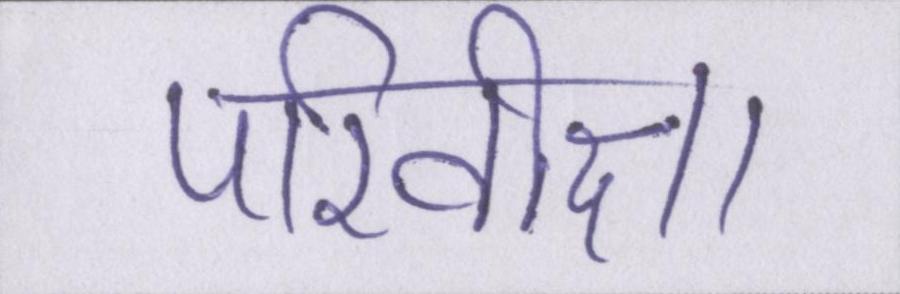 परिवीक्षा